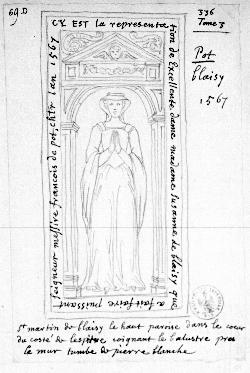 69.D
336
Tome 3
CY EST la representa
tion de Excellente dame madame Susanne de blaisy que
a fait faire puissant
seigneur messire francois de pot, chlr lan 1567
Pot
blaisy
1567
St martin de blaisy le haut paroise dans le coeur
du costé de lespitre joignant le balustre pres
le mur tumbe de pierre blanche